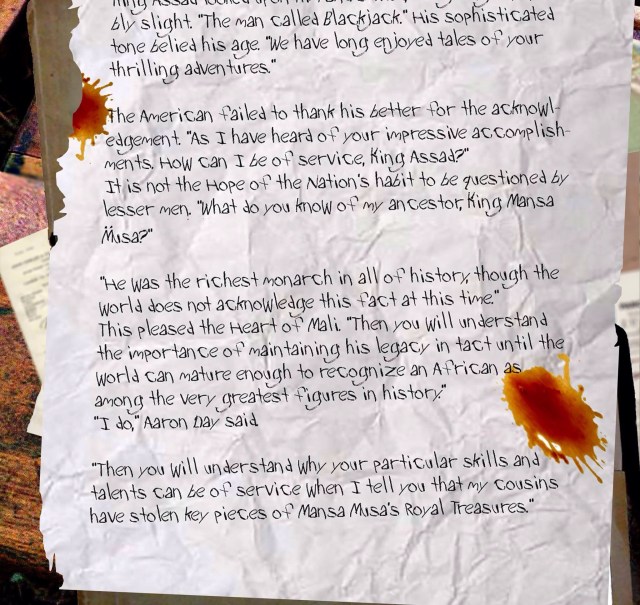 King Assad looked
bly slight. "The man called Blackjack." His sophisticated
tone belied his age. "We have long enjoyed tales of your
thrilling adventures."
The American failed to thank his better for the acknowl-
edgement. "As I have heard of your impressive accomplish-
ments. How can I be of service, King Assad?"
It is not the Hope of the Nation's habit to be questioned by
lesser men. "What do you know of my ancestor, King Mansa
Musa?"
"He was the richest monarch in all of history, though the
world does not acknowledge this fact at this time."
This pleased the Heart of Mali. "Then you will understand
the importance of maintaining his legacy in tact until the
world can mature enough to recognize an African as
among the very greatest figures in history."
"I do," Aaron Day said.
"Then you will understand why your particular skills and
talents can be of service when I tell you that my cousins
have stolen key pieces of Mansa Musa's Royal Treasures."